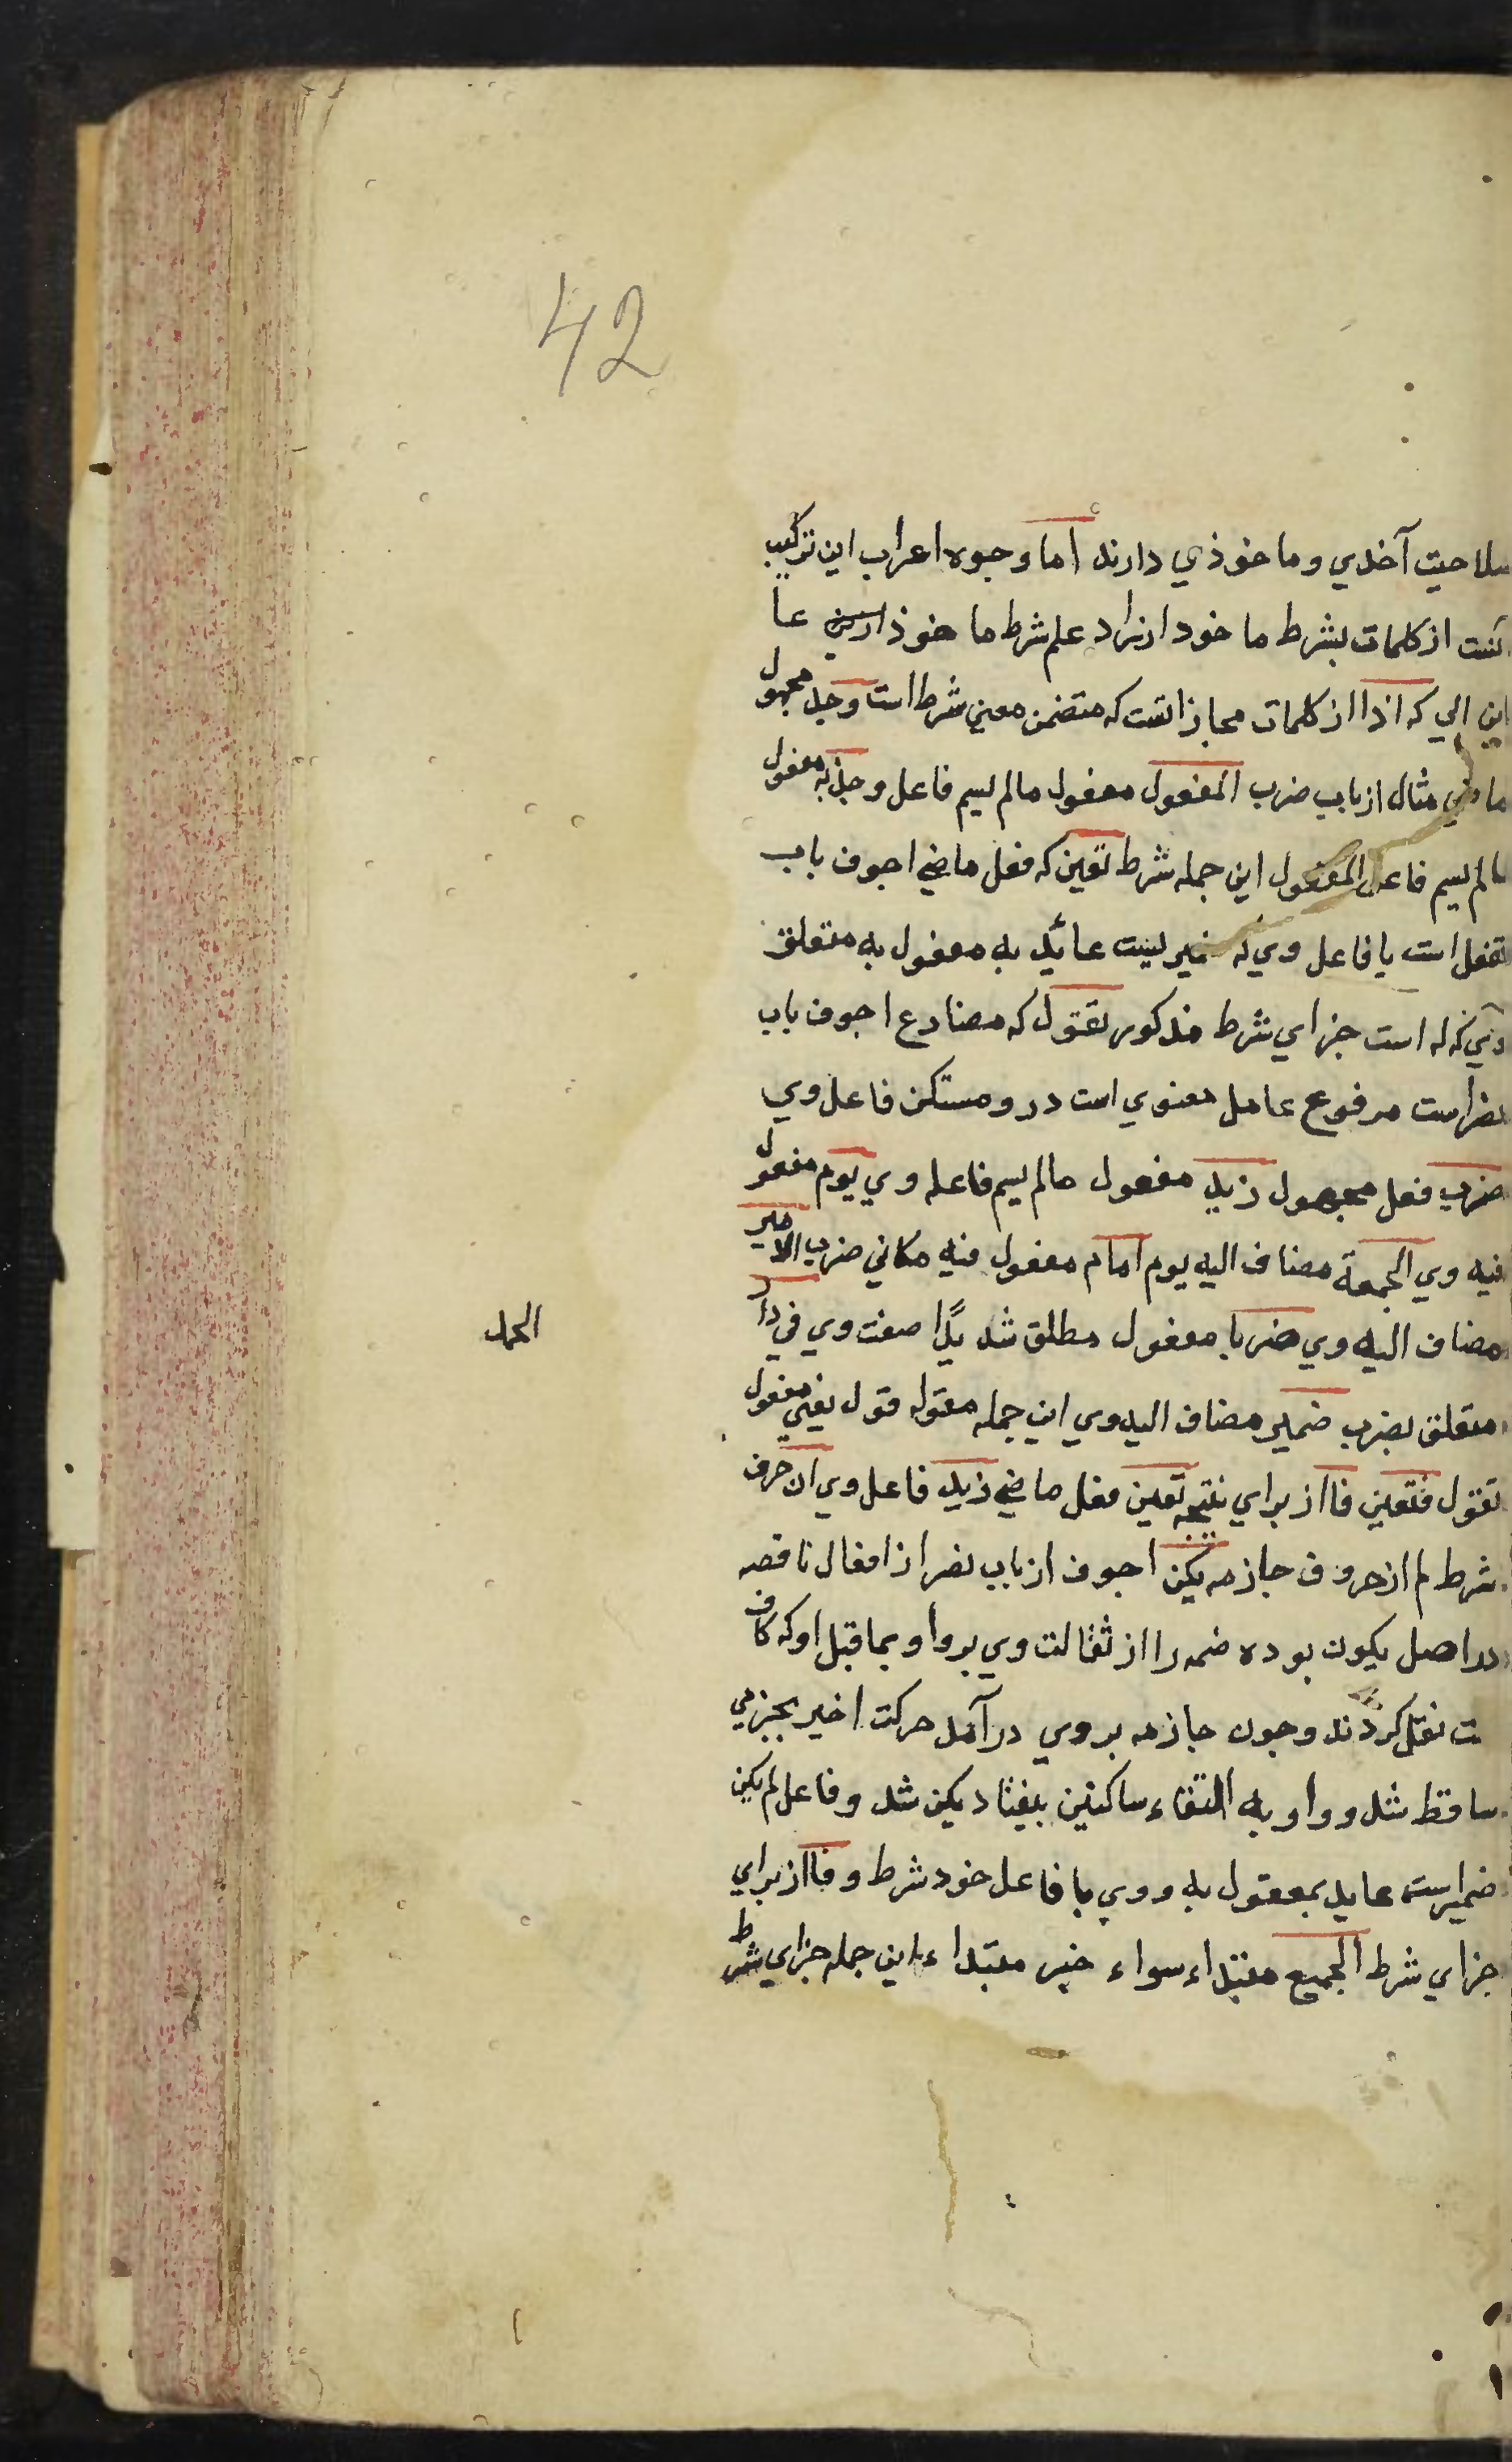 42
صلاحیت آخذي وماخوذي دارند اما وجوه اعراب این ترکیب
از کلمات بشرط ما خود علم شرط ما خوذ
این الي که اذا از کلمات مجازاتست که متضمن معني شرط است وجد مجهول
ماضي مثال از باب ضرب المفعول مفعول مالم یسم فاعل وجد به مفعول
مالم یسم فاعل المفعول این جمله شرط تعین که فعل ماضي اجوف باب
تفعل است یا فاعل وي که ضمیر لیست عائد به مفعول به متعلق
وي که له است جزاي شرط مذکور تقول که مضارع اجوف باب
نصر است مرفوع عامل معنوي است درو مستکن فاعل وي
ضرب فعل مجهول زید مفعول مالم یسم فاعله وي یوم مفعول
فیه وي الجمعة مضاف الیه یوم امام مفعول فیه مکاني ضرب الامیر
مضاف الیه وي ضربا مفعول مطلق شدیدًا صفت وي في دار
الحمد
متعلق بضرب ضمیر مضاف الیه وي این جمله مقوله قول یعني مفعول
تقول فتعین فا از براي نتیجه تعین فعل ماضي زید فاعل وي ان حرف
شرط لم از حروف جازمه یکن اجوف از باب نصر از افعال ناقصه
در اصل یکون بوده ضمه را از ثقالت وي بر واو بماقبل او که کاف
ت نقل کردند وچون جازمه بر وي درآمد حرکت اخیر بجزمي
ساقط شد و واو به التقاء ساکنین بیفتاد یکن شد وفاعل لم یکن
ضمیر است عاید بمعقول به ووي با فاعل خود شرط وفا از براي
جزاي شرط الجمیع مبتداء سواء خبر مبتداء این جمله جزاي شرط